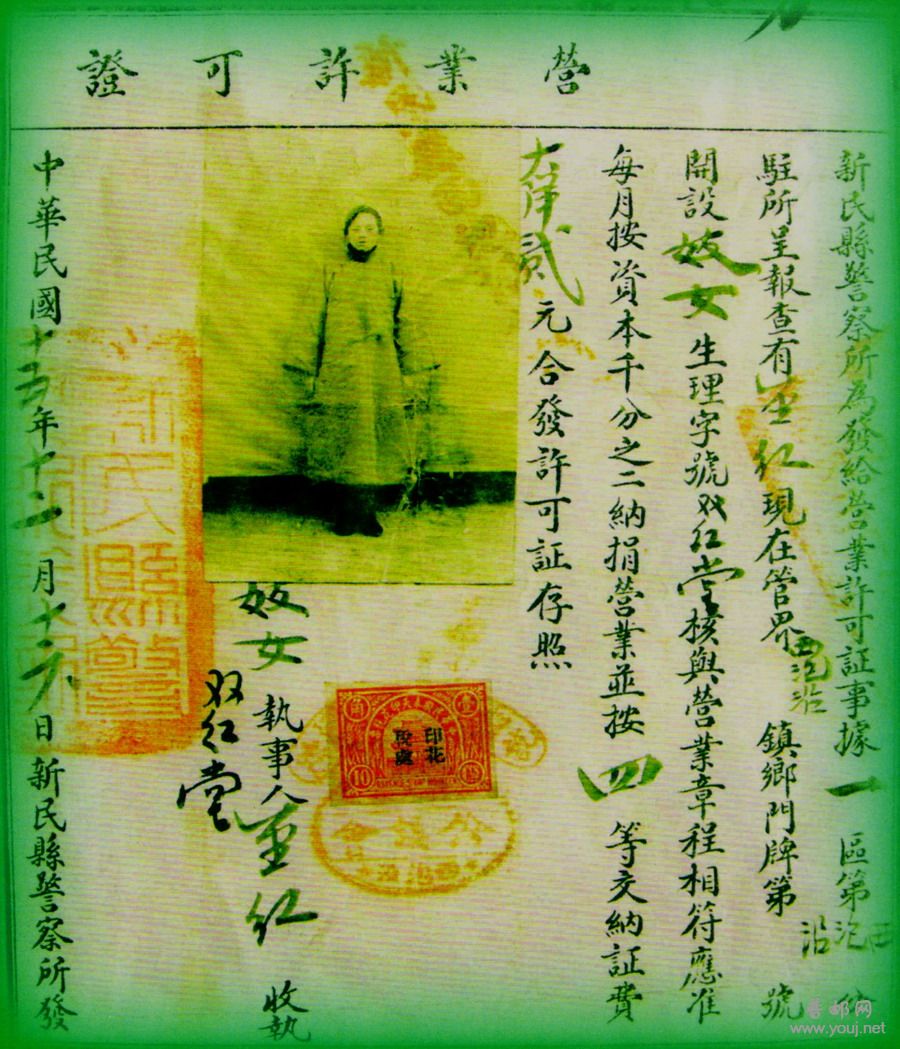 營業許可證
新民縣警察所為發給營業許可証事據一區第
駐所呈報查有金紅現在管界 鎮鄉門牌第 號
開設妓女生理字號双红堂核與營業章程相符應准
每月按資本千分之二納捐營業並按四等交納証費
大洋貳元合發許可証存照
妓女執事人金紅收執
双红堂
中華民國十五年十二月十六日新民縣警察所發
新民縣警
印花
稅處
10
www.youj.net